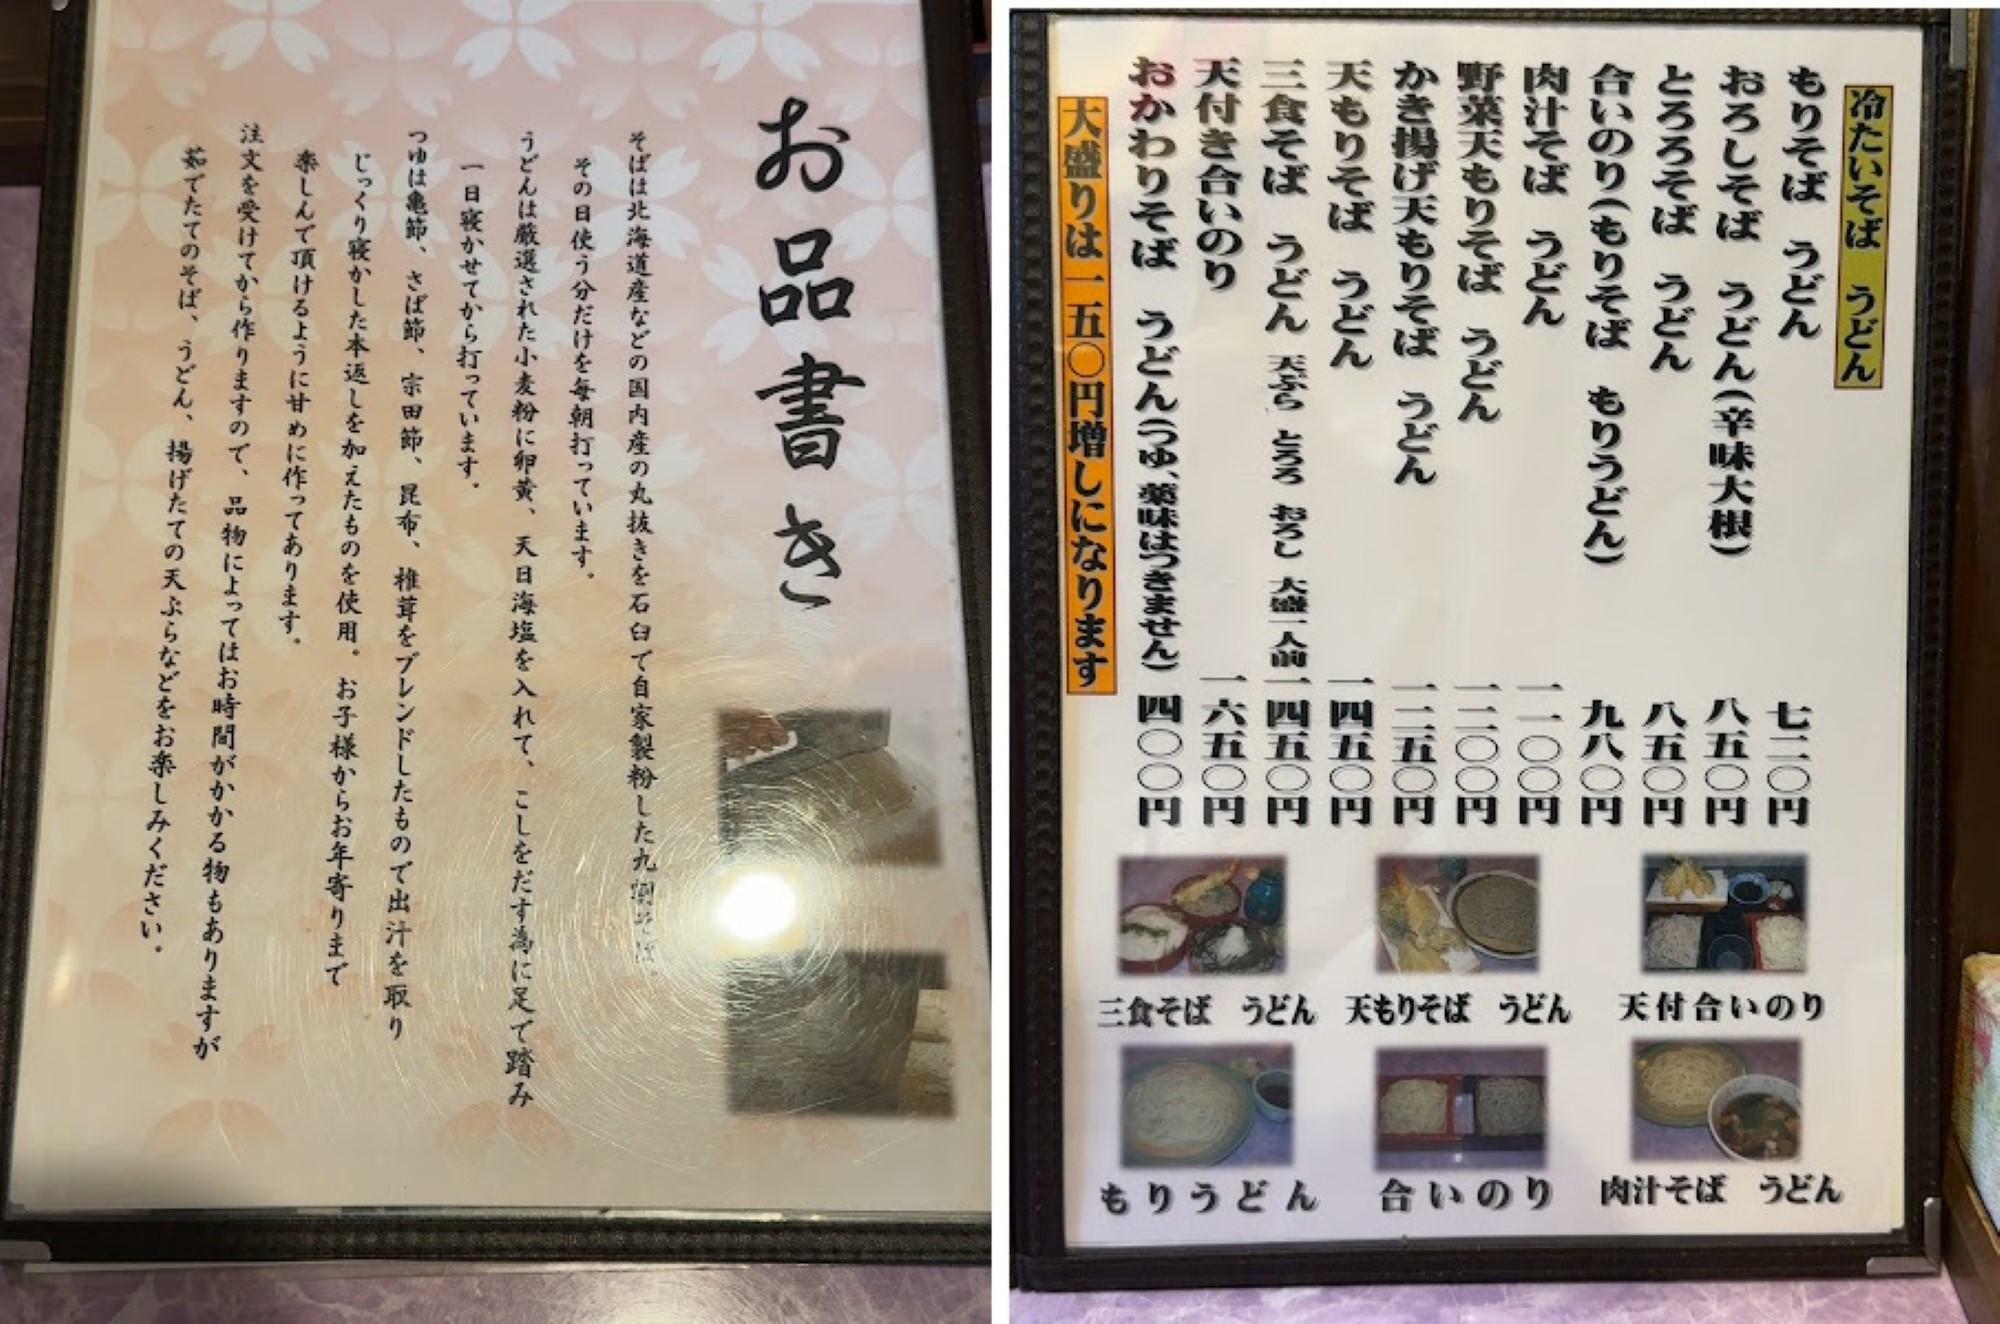 お品書き
そばは北海道産などの国内産の丸抜きを石臼で自家製粉した九割そば。
その日使う分だけを毎朝打っています。
うどんは厳選された小麦粉に卵黄、天日海塩を入れて、こしをだす為に足で踏み
一日寝かせてから打っています。
つゆは亀節、さば節、宗田節、昆布、椎茸をブレンドしたもので出汁を取り
じっくり寝かした本返しを加えたものを使用。お子様からお年寄りまで
楽しんで頂けるように甘めに作ってあります。
注文を受けてから作りますので、品物によってはお時間がかかる物もありますが
茹でたてのそば、うどん、揚げたての天ぷらなどをお楽しみください。
冷たいそば うどん
もりそば うどん 七二〇円
おろしそば うどん(辛味大根) 八五〇円
とろろそば うどん 八五〇円
合いのり(もりそば もりうどん) 九八〇円
肉汁そば うどん 一一〇〇円
野菜天もりそば うどん 一二〇〇円
かき揚げ天もりそば うどん 一二五〇円
天もりそば うどん 一四五〇円
三食そば うどん 天ぷら とろろ おろし 大盛一人前 一四五〇円
天付き合いのり 一六五〇円
おかわりそば うどん(つゆ、薬味はつきません) 四〇〇円
大盛りは一五〇円増しになります
三食そば うどん
天もりそば うどん
天付合いのり
もりうどん
合いのり
肉汁そば うどん